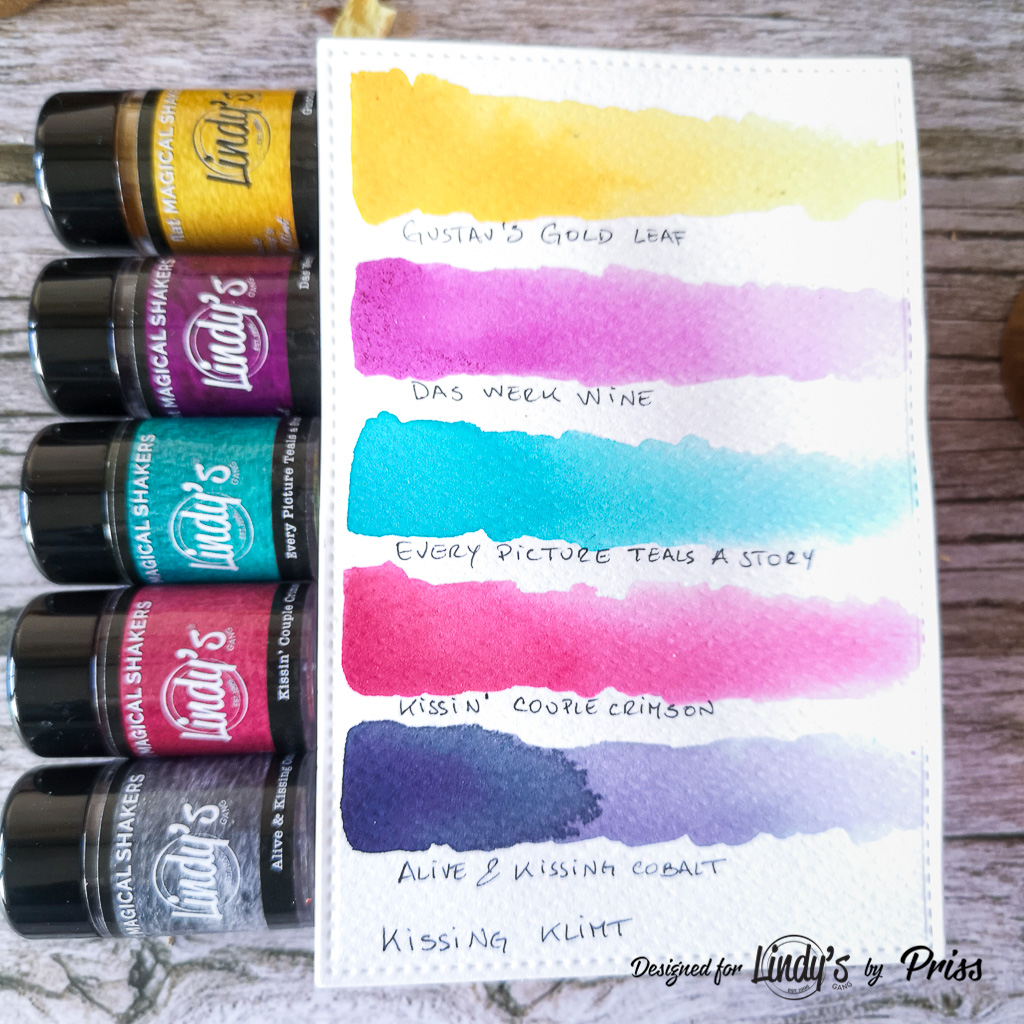 flat MAGICAL SHAKERS
Lindy's
GUSTAV'S GOLD LEAF
MAGICAL SHAKERS
Lindy's
GANG
DAS WERK WINE
MAGICAL SHAKERS
Lindy's
GANG
Every Picture Teals a
EVERY PICTURE TEALS A STORY
MAGICAL SHAKERS
Lindy's
GANG
Kissin' Couple
KISSIN' COUPLE CRIMSON
MAGICAL SHAKERS
Lindy's
GANG
Alive & Kissing
ALIVE & KISSING COBALT
KISSING KLIMT
Designed for Lindy's GANG by Priss